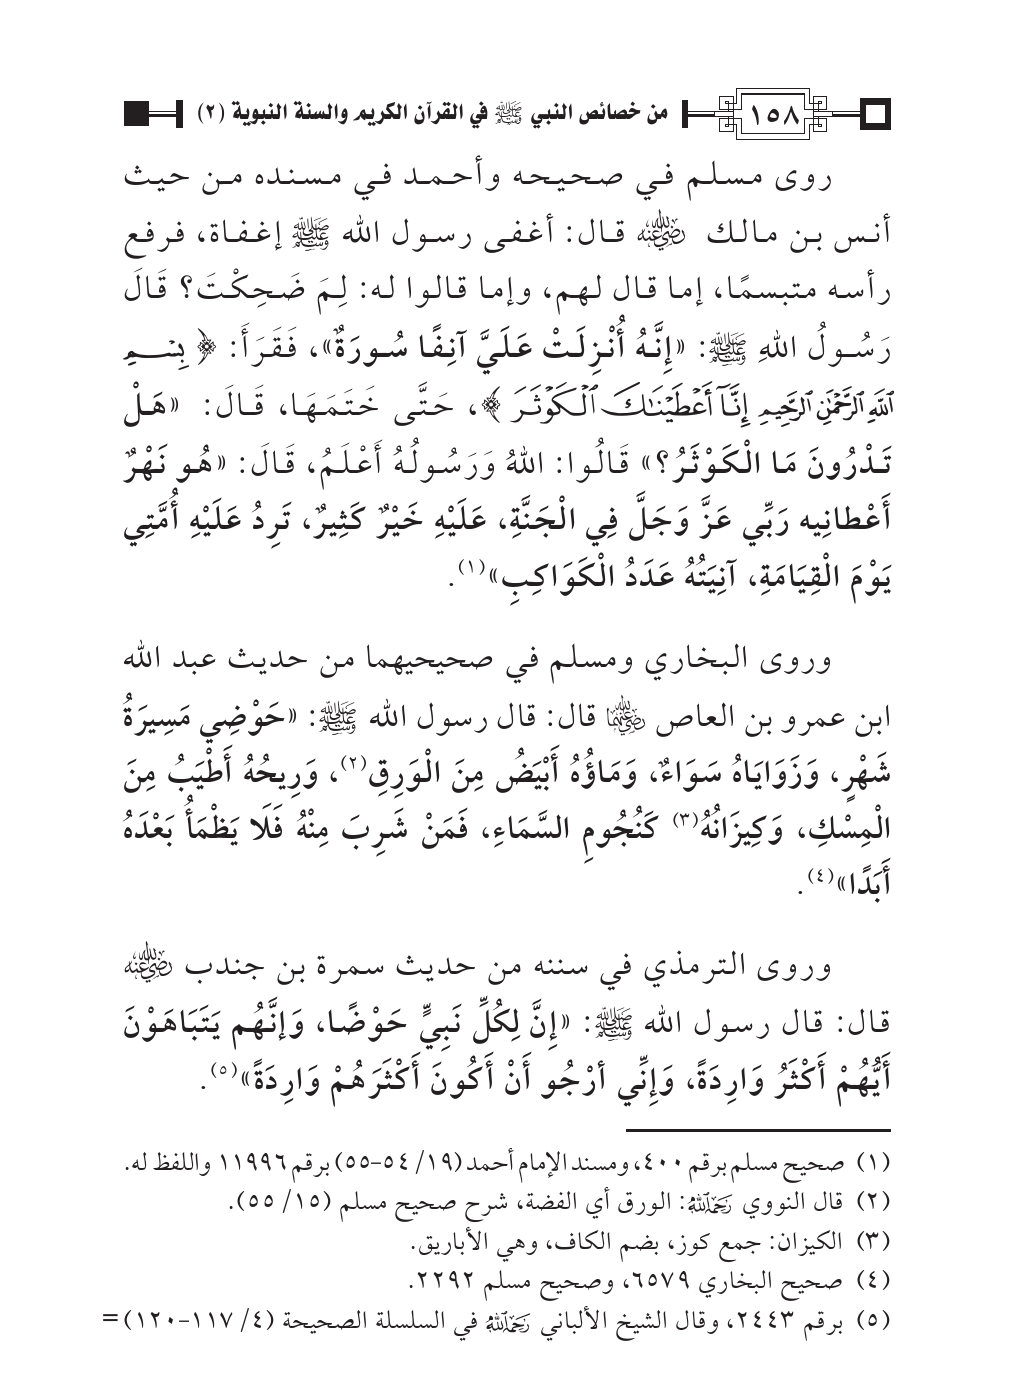 ١٥٨
من خصائص النبي ﷺ في القرآن الكريم والسنة النبوية (٢)
روى مسلم في صحيحه وأحمد في مسنده من حيث
أنس بن مالك رضي الله عنه قال: أغفى رسول الله ﷺ إغفاة، فرفع
رأسه متبسمًا، إما قال لهم، وإما قالوا له: لِمَ ضَحِكْتَ؟ قَالَ
رَسُولُ اللهِ ﷺ: «إِنَّهُ أُنْزِلَتْ عَلَيَّ آنِفًا سُورَةٌ»، فَقَرَأَ: ﴿ بِسْمِ
اللَّهِ الرَّحْمَٰنِ الرَّحِيمِ إِنَّا أَعْطَيْنَاكَ الْكَوْثَرَ ﴾، حَتَّى خَتَمَهَا، قَالَ: «هَلْ
تَدْرُونَ مَا الْكَوْثَرُ؟» قَالُوا: اللهُ وَرَسُولُهُ أَعْلَمُ، قَالَ: «هُو نَهْرٌ
أَعْطانِيه رَبِّي عَزَّ وَجَلَّ فِي الْجَنَّةِ، عَلَيْهِ خَيْرٌ كَثِيرٌ، تَرِدُ عَلَيْهِ أُمَّتِي
يَوْمَ الْقِيَامَةِ، آنِيَتُهُ عَدَدُ الْكَوَاكِبِ»(١).
وروى البخاري ومسلم في صحيحيهما من حديث عبد الله
ابن عمرو بن العاص رضي الله عنهما قال: قال رسول الله ﷺ: «حَوْضِي مَسِيرَةُ
شَهْرٍ، وَزَوَايَاهُ سَوَاءٌ، وَمَاؤُهُ أَبْيَضُ مِنَ الْوَرِقِ(٢)، وَرِيحُهُ أَطْيَبُ مِنَ
الْمِسْكِ، وَكِيزَانُهُ(٣) كَنُجُومِ السَّمَاءِ، فَمَنْ شَرِبَ مِنْهُ فَلَا يَظْمَأُ بَعْدَهُ
أَبَدًا»(٤).
وروى الترمذي في سننه من حديث سمرة بن جندب رضي الله عنه
قال: قال رسول الله ﷺ: «إِنَّ لِكُلِّ نَبِيٍّ حَوْضًا، وَإنَّهُم يَتَبَاهَوْنَ
أَيُّهُمْ أَكْثَرُ وَارِدَةً، وَإِنِّي أرْجُو أَنْ أَكُونَ أَكْثَرَهُمْ وَارِدَةً»(٥).
(١) صحيح مسلم برقم ٤٠٠، ومسند الإمام أحمد (١٩/ ٥٤-٥٥) برقم ١١٩٩٦ واللفظ له.
(٢) قال النووي رحمه الله: الورق أي الفضة، شرح صحيح مسلم (١٥/ ٥٥).
(٣) الكيزان: جمع كوز، بضم الكاف، وهي الأباريق.
(٤) صحيح البخاري ٦٥٧٩، وصحيح مسلم ٢٢٩٢.
(٥) برقم ٢٤٤٣، وقال الشيخ الألباني رحمه الله في السلسلة الصحيحة (٤/ ١١٧-١٢٠) =